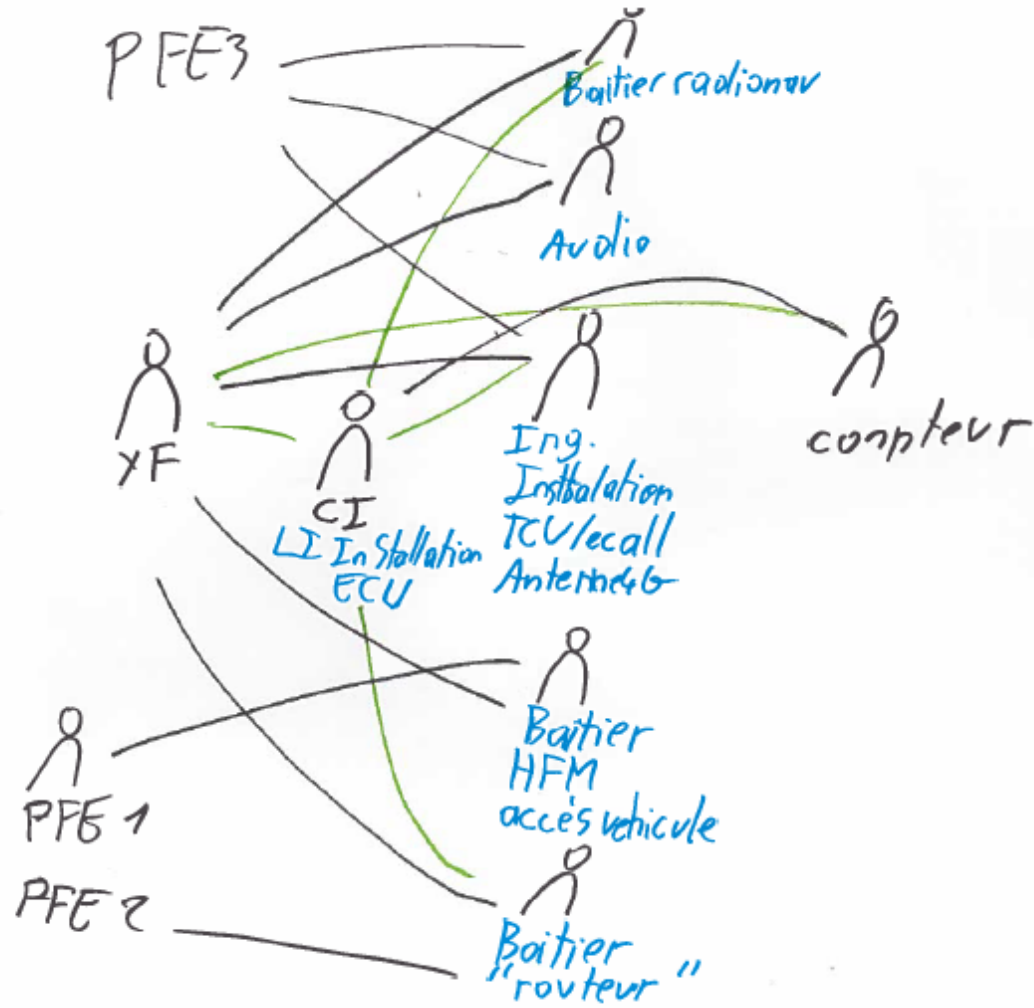 PFE3
Boitier radionav
Audio
YF
CI
LI Installation
ECU
Ing.
Insttalation
TCU/ecall
Antenne4G
compteur
Boitier
HFM
accès vehicule
PFE 1
PFE 2
Boitier
"routeur"